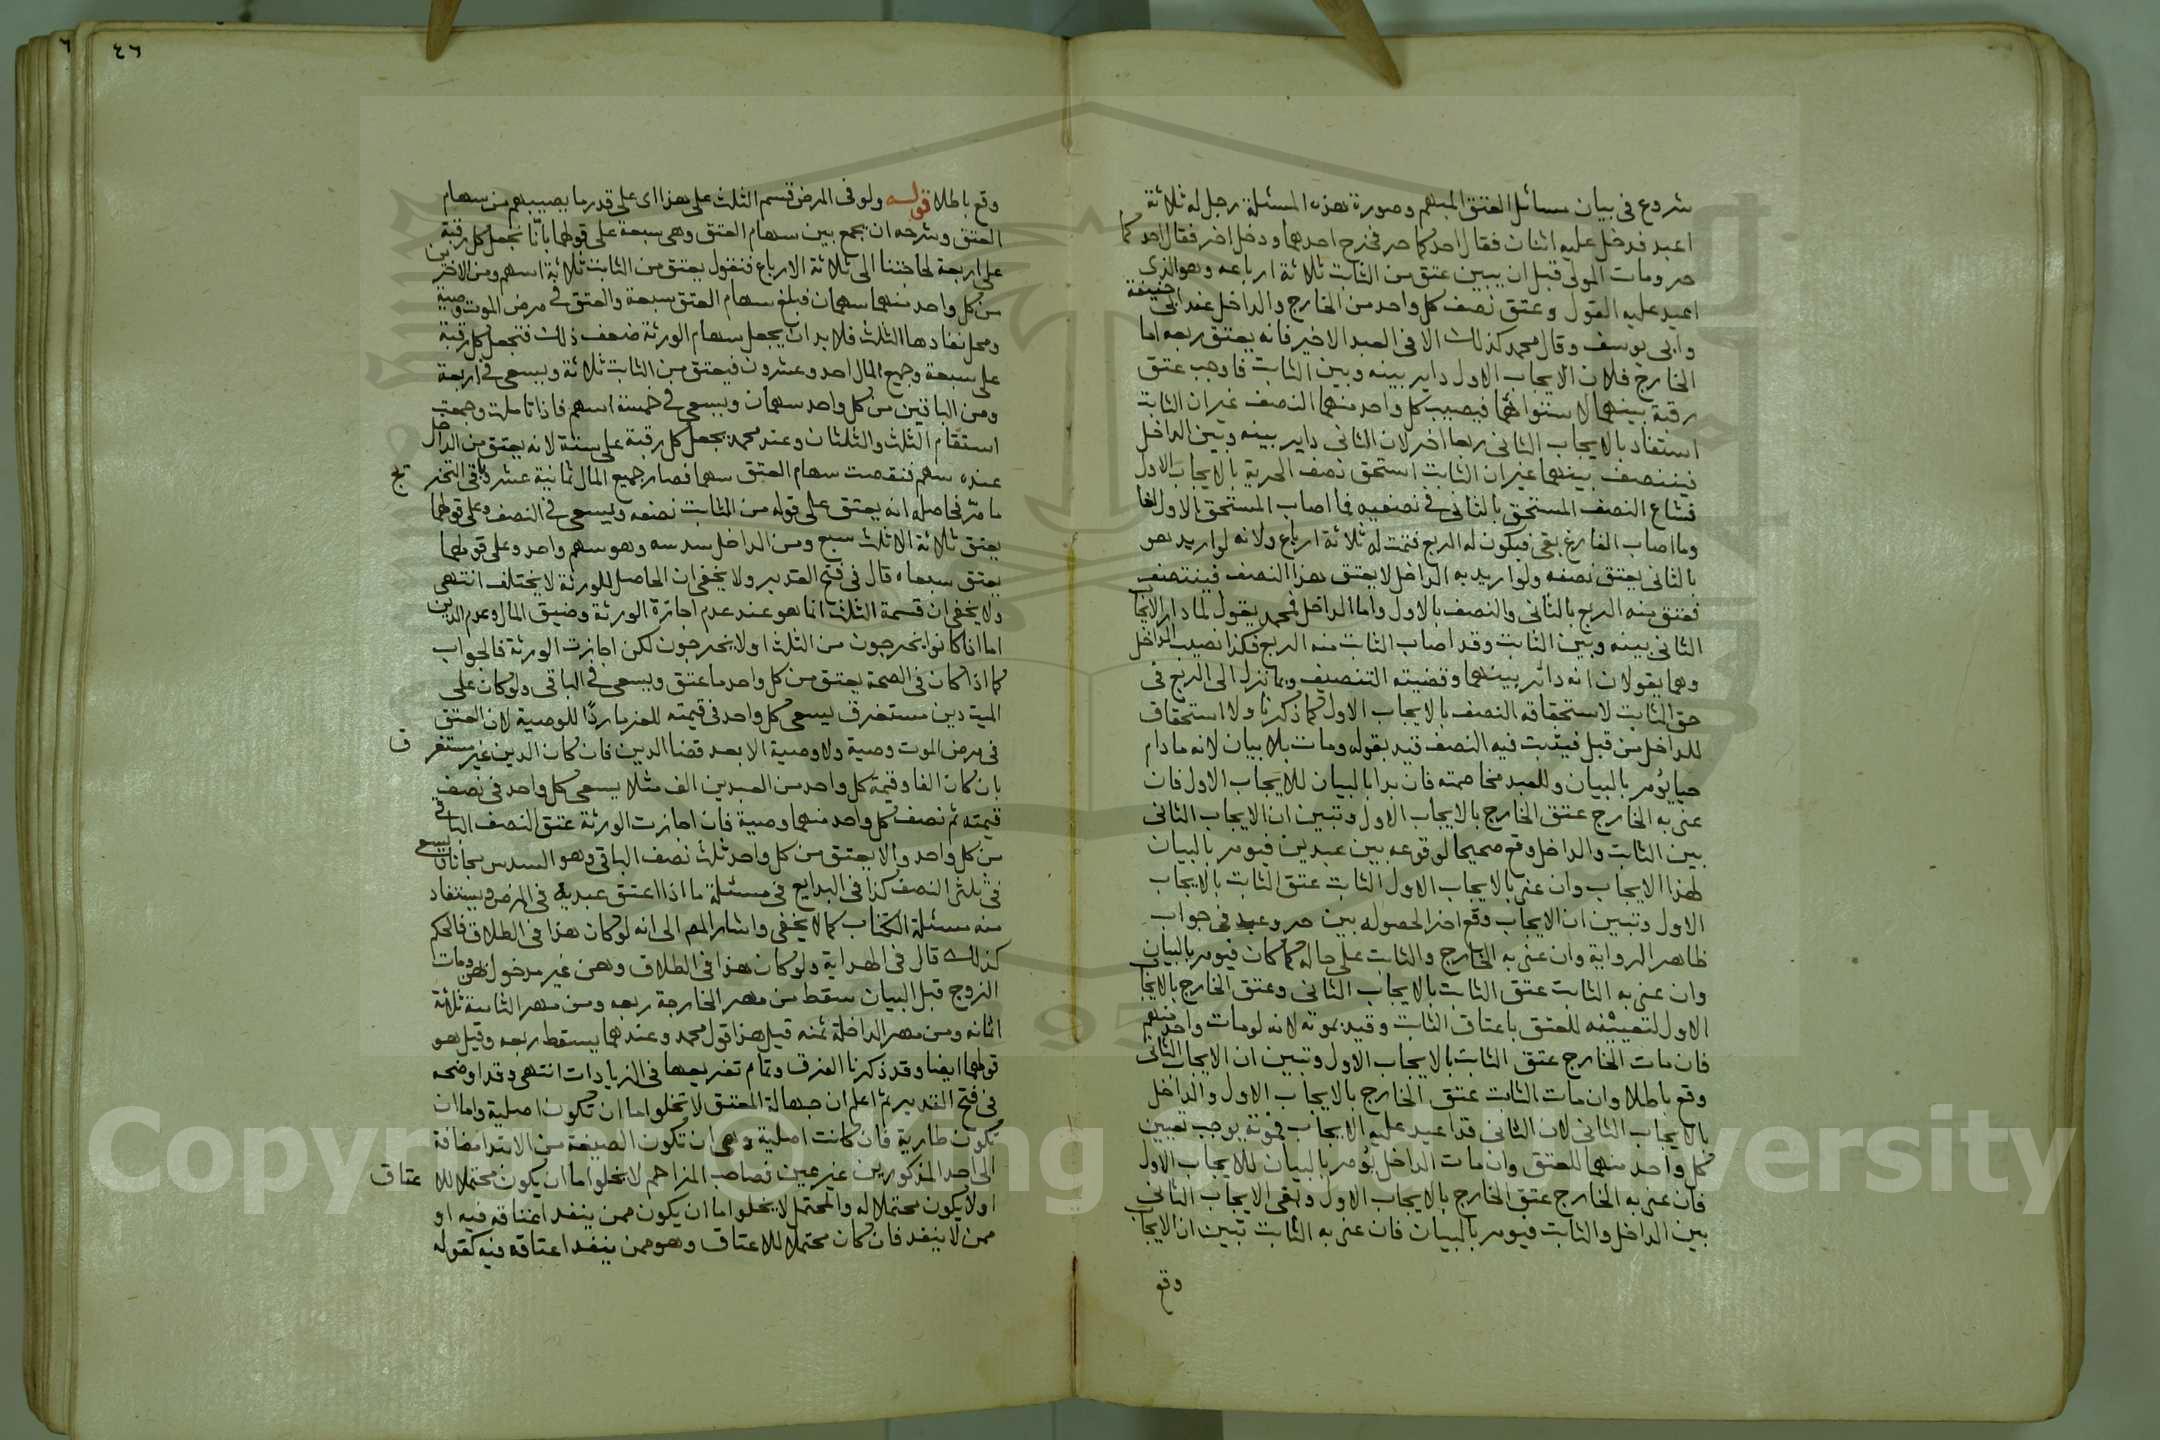 شروع في بيان مسائل العتق المبهم وصورة هذه المسئلة رجل له ثلاثة
اعبد فدخل عليه اثنان فقال احدكما حر فخرج احدهما ودخل اخر فقال احدكما
حر ومات المولى قبل ان يبين عتق من الثابت ثلاثة ارباعه وهو الذي
اعيد عليه القول وعتق نصف كل واحد من الخارج والداخل عند ابي حنيفة
وابي يوسف وقال محمد كذلك الا في العبد الاخير فانه يعتق ربعه اما
الخارج فلان الايجاب الاول داير بينه وبين الثابت فاوجب عتق
رقبة بينهما لاستوائهما فيصيب كل واحد منهما النصف غير ان الثابت
استفاد بالايجاب الثاني ربعا اخر لان الثاني داير بينه وبين الداخل
فيتنصف بينهما غير ان الثابت استحق نصف الحرية بالايجاب الاول
فشاع النصف المستحق بالثاني في نصفيه فما اصاب المستحق بالاول لغا
وما اصاب الفارغ بقي فيكون له الربع فتمت له ثلاثة ارباع ولانه لو اريد هو
بالثاني يعتق نصفه ولو اريد به الداخل لا يعتق هذا النصف فينتصف
فعتق منه الربع بالثاني والنصف بالاول واما الداخل فمحمد يقول لما دار الايجاب
الثاني بينه وبين الثابت وقد اصاب الثابت منه الربع فكذا نصيب الداخل
وهما يقولان انه دائر بينهما وقضيته التنصيف وانما نزل الى الربع في
حق الثابت لاستحقاقه النصف بالايجاب الاول كما ذكرنا ولا استحقاق
للداخل من قبل فيثبت فيه النصف قيد بقوله ومات بلا بيان لانه ما دام
حيا يؤمر بالبيان وللعبد مخاصمته فان بدا بالبيان للايجاب الاول فان
عنى به الخارج عتق الخارج بالايجاب الاول وتبين ان الايجاب الثاني
بين الثابت والداخل وقع صحيحا لوقوعه بين عبدين فيومر بالبيان
لهذا الايجاب وان عنى بالايجاب الاول الثابت عتق الثابت بالايجاب
الاول وتبين ان الايجاب وقع اخر الحصوله بين حر وعبد في جواب
ظاهر الرواية وان عنى به الخارج والثابت على حاله كما كان فيومر بالبيان
وان عنى به الثابت عتق الثابت بالايجاب الثاني وعتق الخارج بالايجاب
الاول لتعيينه للعتق باعتاق الثابت وقيد بموته لانه لو مات واحد منهم
فان مات الخارج عتق الثابت بالايجاب الاول وتبين ان الايجاب الثاني
وقع باطلا وان مات الثابت عتق الخارج بالايجاب الاول والداخل
بالايجاب الثاني لان الثاني قد اعيد عليه الايجاب فموته يوجب تعيين
كل واحد منهما للعتق وان مات الداخل يؤمر بالبيان للايجاب الاول
فان عنى به الخارج عتق الخارج بالايجاب الاول وبقي الايجاب الثاني
بين الداخل والثابت فيومر بالبيان فان عنى به الثابت تبين ان الايجاب
وقع
٤٦
وقع باطلا قوله ولو في المرض قسم الثلث على هذا اي على قدر ما يصيبهم من سهام
العتق وشرحه ان يجمع بين سهام العتق وهي سبعة على قولهما بانا نجعل كل رقبة
على اربعة لحاجتنا الى ثلاثة الارباع فنقول يعتق من الثابت ثلاثة اسهم ومن الاخرين
من كل واحد منهما سهمان فبلغ سهام العتق سبعة والعتق في مرض الموت وصية
ومحل نفادها الثلث فلا بد ان يجعل سهام الورثة ضعف ذلك فتجعل كل رقبة
على سبعة وجميع المال احد وعشرون فيعتق من الثابت ثلاثة ويسعى في اربعة
ومن الباقيين من كل واحد سهمان ويسعى في خمسة اسهم فاذا تاملت وجمعت
استقام الثلث والثلثان وعند محمد يجعل كل رقبة على ستة لانه يعتق من الداخل
عنده سهم فنقصت سهام العتق سهما فصار جميع المال ثمانية عشر وباقي التخريج
ما مر فحاصله انه يعتق على قوله من الثابت نصفه ويسعى في النصف وعلى قولهما
يعتق ثلاثة الا ثلث سبع ومن الداخل سدسه وهو سهم واحد وعلى قولهما
يعتق سبعاه قال في فتح القدير ولا يخفى ان الحاصل للورثة لا يختلف انتهى
ولا يخفى ان قسمة الثلث انما هو عند عدم اجازة الورثة وضيق المال وعدم الدين
اما اذا كانوا يخرجون من الثلث او لا يخرجون لكن اجازت الورثة فالجواب
كما اذا كان في الصحة يعتق من كل واحد ما عتق ويسعى في الباقي ولو كان على
الميت دين مستغرق يسعى كل واحد في قيمته للغرما ردا للوصية لان العتق
في مرض الموت وصية ولا وصية الا بعد قضا الدين فان كان الدين غير مستغرق
بان كان الفا وقيمة كل واحد من العبدين الف مثلا يسعى كل واحد في نصف
قيمته ثم نصف كل واحد منهما وصية فان اجازت الورثة عتق النصف الباقي
من كل واحد والا يعتق من كل واحد ثلث نصف الباقي وهو السدس مجانا ويسعى
في ثلثي النصف كذا في البدايع في مسئلة ما اذا اعتق عبديه في المرض ويستفاد
منه مسئلة الكتاب كما لا يخفى واشار المصـ الى انه لو كان هذا في الطلاق فالحكم
كذلك قال في الهداية ولو كان هذا في الطلاق وهن غير مدخول بهن ومات
الزوج قبل البيان سقط من مهر الخارجة ربعه ومن مهر الثابتة ثلاثة
اثمانه ومن مهر الداخلة ثمنه قيل هذا قول محمد وعندهما يسقط ربعه وقيل هو
قولهما ايضا وقد ذكرنا الفرق وتمام تفريعها في الزيادات انتهى وقد اوضحه
في فتح القدير ثم اعلم ان جهالة المعتق لا تخلو اما ان تكون اصلية واما ان
تكون طارية فان كانت اصلية وهي ان تكون الصيغة من الابتدا مضافة
الى احد المذكورين غير عين فصاحبه المزاحم لا يخلو اما ان يكون محتملا للاعتاق
او لا يكون محتملا له والمحتمل لا يخلوا اما ان يكون ممن ينفد اعتاقه فيه او
ممن لا ينفد فان كان محتملا للاعتاق وهو ممن ينفد اعتاقه فيه كقوله
Copyright © King Saud University